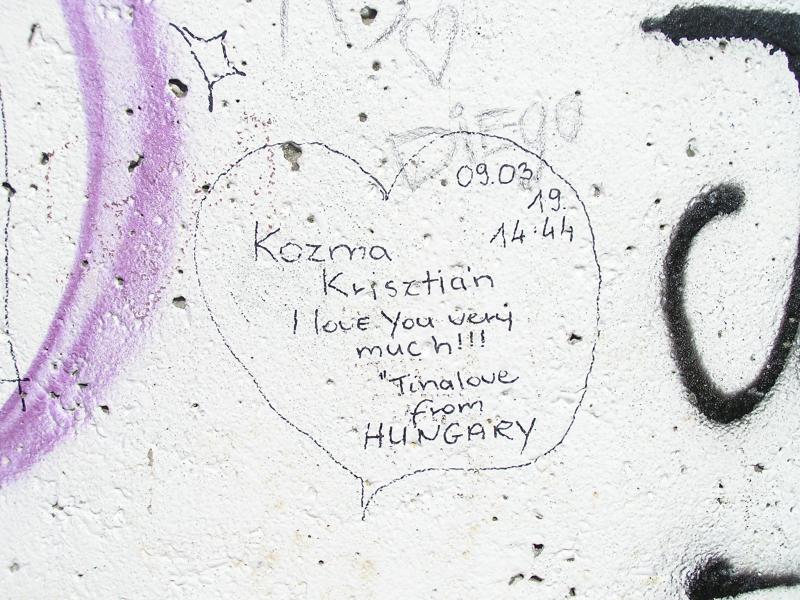 Diego
09.03.
19.
14:44
Kozma
Krisztián
I love You very
much!!!
"Tinalove
from
HUNGARY